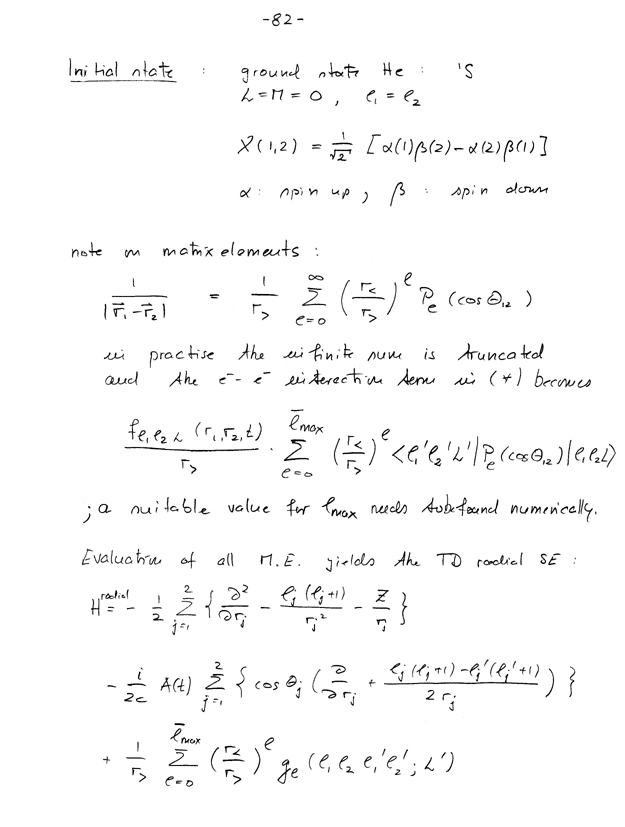 -82-
Initial state : ground state He : ¹S
L = M = 0 , ℓ₁ = ℓ₂
χ(1,2) = 1/√2 [α(1)β(2) - α(2)β(1)]
α : spin up , β : spin down
note on matrix elements :
1/|r⃗₁-r⃗₂| = 1/r_> Σ_{ℓ=0}^{∞} (r_</r_>)^ℓ P_ℓ (cos Θ₁₂)
in practise the infinite sum is truncated
and the e⁻- e⁻ interaction term in (*) becomes
f_{ℓ₁ℓ₂L} (r₁,r₂,t)/r_> · Σ_{ℓ=0}^{ℓ̄max} (r_</r_>)^ℓ <ℓ₁'ℓ₂'L'|P_ℓ(cosΘ₁₂)|ℓ₁ℓ₂L>
; a suitable value for ℓmax needs to be found numerically.
Evaluation of all M.E. yields the TD radial SE :
H^radial = - 1/2 Σ_{j=1}^{2} { ∂²/∂r_j - ℓ_j(ℓ_j+1)/r_j² - Z/r_j }
- i/2c A(t) Σ_{j=1}^{2} { cos θ_j ( ∂/∂r_j + ℓ_j(ℓ_j+1)-ℓ_j'(ℓ_j'+1)/2r_j ) }
+ 1/r_> Σ_{ℓ=0}^{ℓ̄max} (r_</r_>)^ℓ g_ℓ (ℓ₁ ℓ₂ ℓ₁'ℓ₂' ; L')